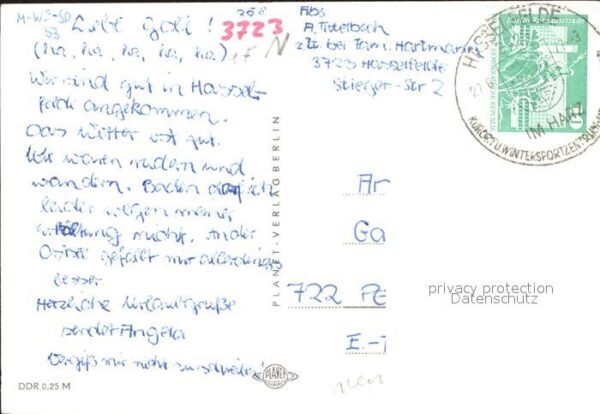 M-WE-SD
53
Liebe Gabi!
(ha, ha, ha, ha, ha)
Wir sind gut in Hassel-
felde angekommen.
Das Wetter ist gut.
Wir waren rudern und
wandern. Baden darf ich
leider wegen meiner
Erkältung nicht. An der
Ostsee gefällt mir allerdings
besser.
Herzliche Urlaubsgrüße
sendet Angela
Vergiß mir nicht zu schreiben!
DDR 0,25 M
PLANET-VERLAG BERLIN
PLANET
3723
Abs
A. Tittelbach
z. Zt. bei Fam. Hartmann
3723 Hasselfelde
Stieger-Str 2
HASSELFELDE
IM HARZ
KURORT U. WINTERSPORTZENTRUM
Berlin, Rathausstraße
10
An
Ga
722 PE
E.-T
privacy protection
Datenschutz